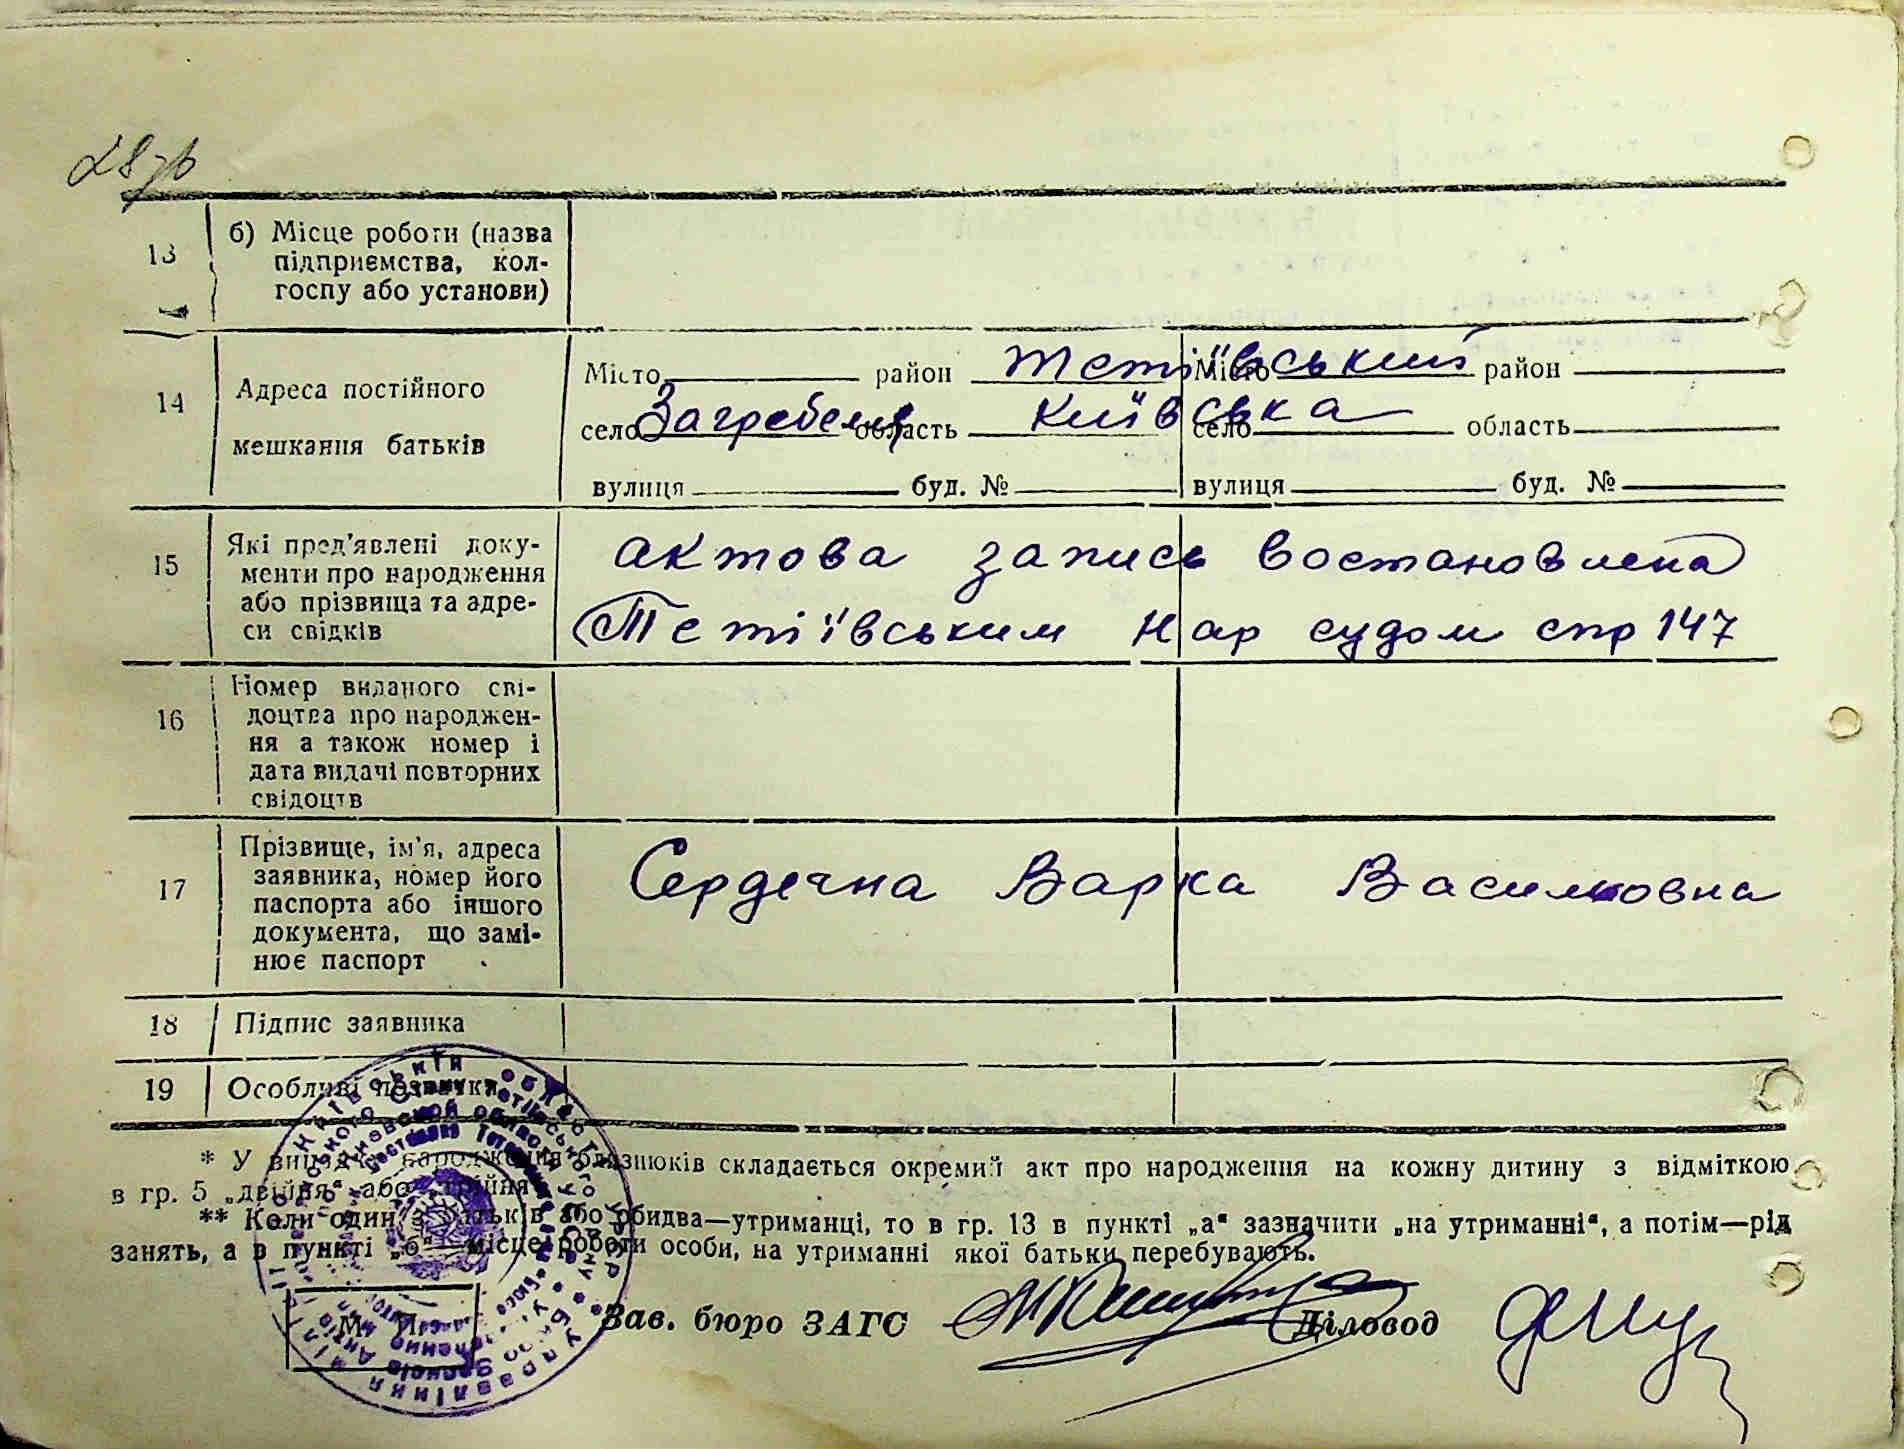 13
б) Місце роботи (назва
підприємства, кол-
госпу або установи)
14
Адреса постійного
мешкання батьків
Місто район Тетіївський Місто район
село Загребелля область Київська село область
вулиця буд. № вулиця буд. №
15
Які пред'явлені доку-
менти про народження
або прізвища та адре-
си свідків
актова запись востановлена
Тетіївським Нар судом спр 147
16
Номер виданого сві-
доцтва про народжен-
ня а також номер і
дата видачі повторних
свідоцтв
17
Прізвище, ім'я, адреса
заявника, номер його
паспорта або іншого
документа, що замі-
нює паспорт
Сердечна Варка Василовна
18
Підпис заявника
19
Особливі позначки
* У випадку народження близнюків складається окремий акт про народження на кожну дитину з відміткою
в гр. 5 „двійня“ або „трійня“
** Коли один з батьків або обидва—утриманці, то в гр. 13 в пункті „а“ зазначити „на утриманні“, а потім—рід
занять, а в пункті „б“—місце роботи особи, на утриманні якої батьки перебувають.
М. П.
Зав. бюро ЗАГС
Діловод